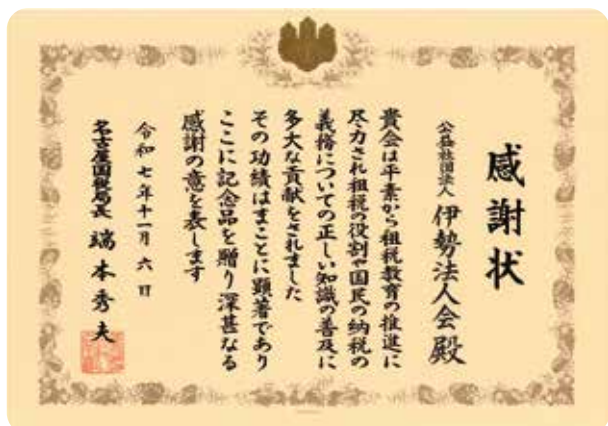 感謝状
公益社団法人 伊勢法人会殿
貴会は平素から租税教育の推進に
尽力され租税の役割や国民の納税の
義務についての正しい知識の普及に
多大な貢献をされました
その功績はまことに顕著であり
ここに記念品を贈り深甚なる
感謝の意を表します
令和七年十一月六日
名古屋国税局長 端本秀夫